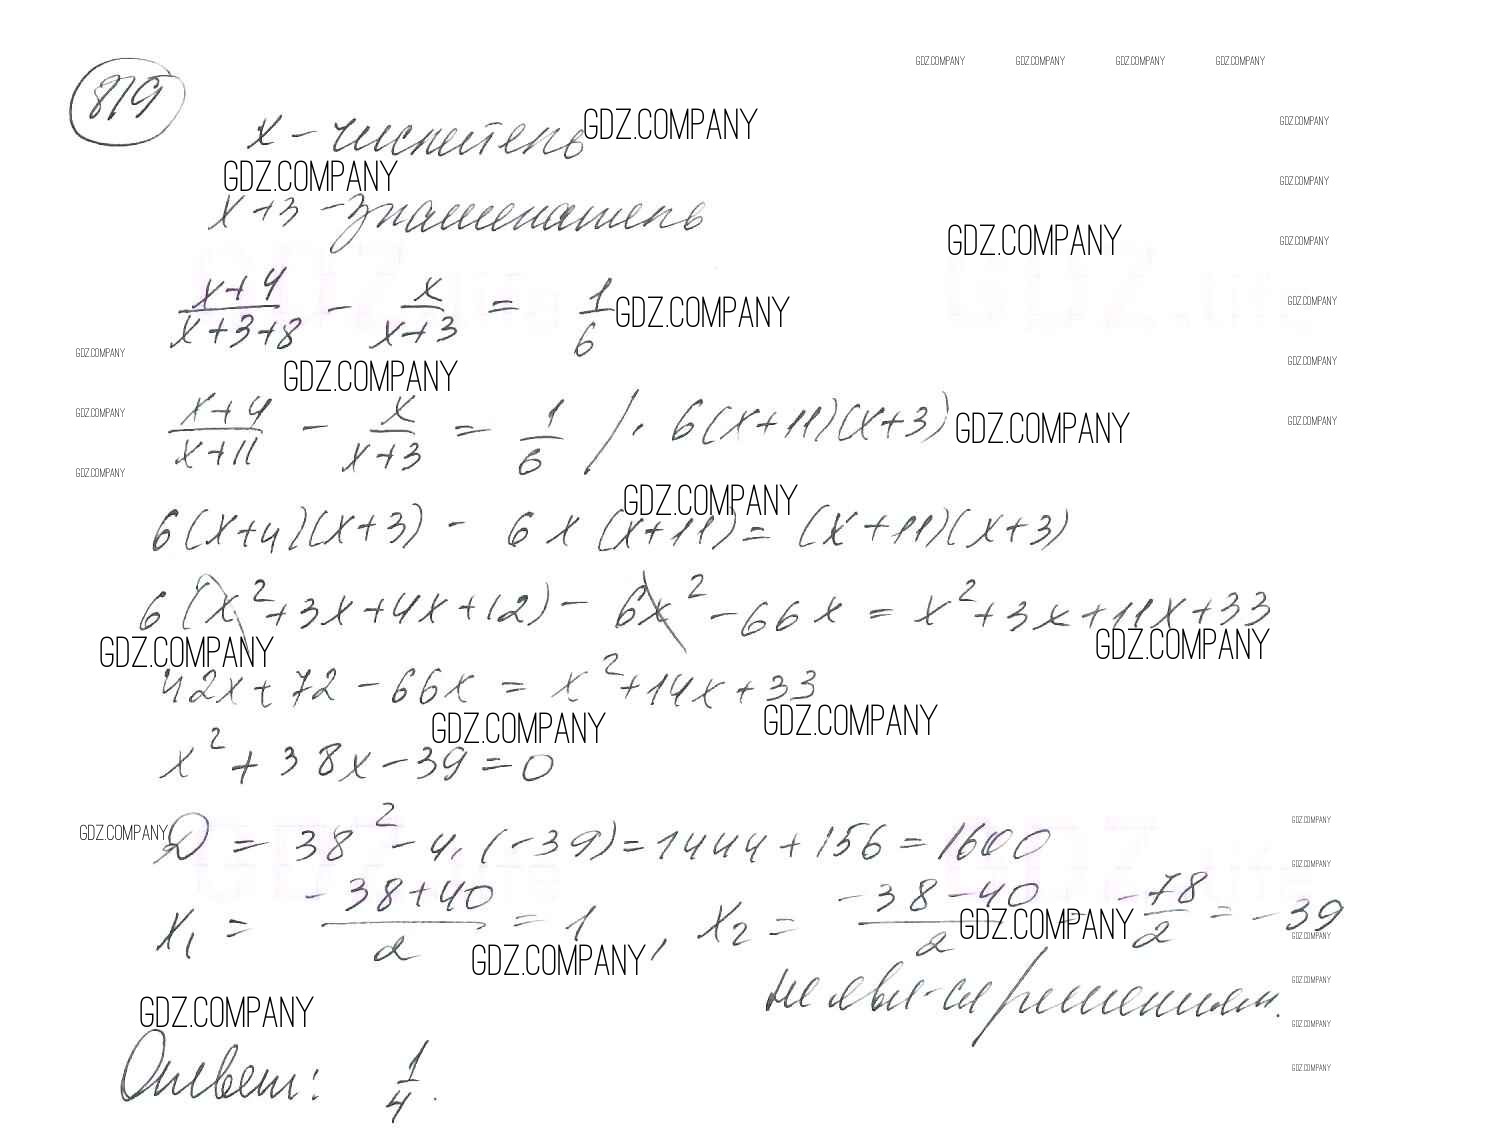 GDZ.COMPANY GDZ.COMPANY GDZ.COMPANY GDZ.COMPANY
819
x - числитель GDZ.COMPANY
GDZ.COMPANY
GDZ.COMPANY
GDZ.COMPANY
x+3 - знаменатель
GDZ.COMPANY GDZ.COMPANY
(x+4)/(x+3+8) - x/(x+3) = 1/6 GDZ.COMPANY
GDZ.COMPANY
GDZ.COMPANY
GDZ.COMPANY GDZ.COMPANY
(x+4)/(x+11) - x/(x+3) = 1/6 / · 6(x+11)(x+3) GDZ.COMPANY
GDZ.COMPANY GDZ.COMPANY
GDZ.COMPANY
GDZ.COMPANY
6(x+4)(x+3) - 6x(x+11) = (x+11)(x+3)
6(x²+3x+4x+12) - 6x² - 66x = x²+3x+11x+33
GDZ.COMPANY GDZ.COMPANY
42x + 72 - 66x = x²+14x+33
GDZ.COMPANY GDZ.COMPANY
x² + 38x - 39 = 0
GDZ.COMPANY GDZ.COMPANY
D = 38² - 4·(-39) = 1444 + 156 = 1600
GDZ.COMPANY
x₁ = (-38+40)/2 = 1, x₂ = (-38-40)/2 = -78/2 = -39
GDZ.COMPANY GDZ.COMPANY
GDZ.COMPANY
не явл-ся решением.
GDZ.COMPANY
GDZ.COMPANY
GDZ.COMPANY
Ответ: 1/4.
GDZ.COMPANY